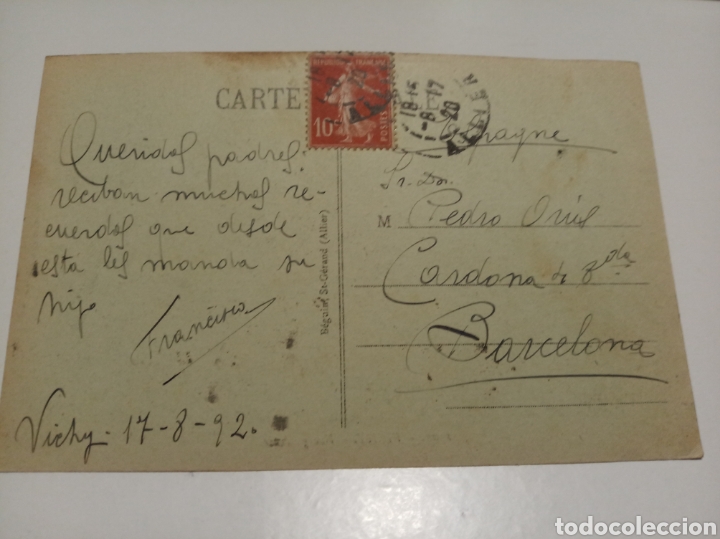 CARTE
REPUBLIQUE FRANÇAISE
10c
POSTES
18 15
17 - 8
20
Espagne
Queridos padres:
reciban muchos re-
cuerdos que desde
esta les manda su
hijo
Francisco
Vichy - 17-8-92.
Béguin, St-Gérand (Allier)
Sr. Dn.
M Pedro
Cardona
Barcelona
todocoleccion